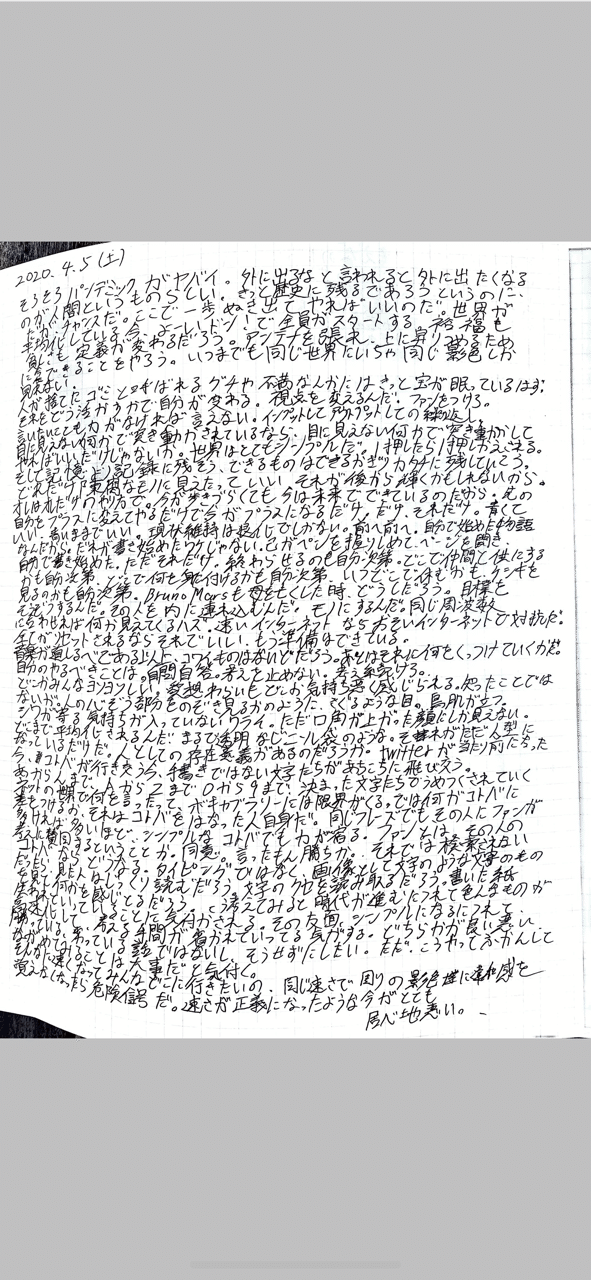 2020. 4.5 (土)
そろそろパンデミックがヤバイ。外に出るなと言われると外に出たくなる
のが人間というものらしい。きっと歴史に残るであろうというのに、
チャンスだ。ここで一歩ぬき出てやればいいのだ。世界が
平均化している今、よーいドン!で全員がスタートする。裕福も
定義が変わるだろう。アンテナを張れ、上に昇りつめるため
にできることをやろう。いつまでも同じ世界にいちゃ同じ景色しか
見えない。
人が捨てたゴミと呼ばれるグチや不満なんかにはきっと宝が眠っているはず。
それをどう活かすかで自分が変わる。視点を変えるんだ。ファンをつけろ。
言いたいことも力がなければ言えない。インプットしてアウトプットしての繰り返し。
目に見えない何かで突き動かされているなら、目に見えない何かで突き動かして
やればいいだけじゃないか。世界はとてもシンプルだ。1押したら1押しかえせる。
そして記憶より記録に残そう、できるものはできるかぎりカタチに残していこう。
どれだけ陳腐なモノに見えたっていい、それが後から輝くかもしれないから。
オレはオレだけの利方で。今が歩きづらくても今は未来でできているのだから。
自分をプラスに変えてやるだけで今がプラスになるだけ、だけ、それだけ。青くて
いい、青いままでいい。現状維持は長化でしかない。前へ前へ。自分で始めた物語
なんだから。だれが書き始めたワケじゃない。己がペンを握りしめてページを開き、
自分で書き始めた。ただそれだけ。終わらせるのも自分次第。どこで仲間と供にする
かも自分次第。どこで何を身に付けるかも自分次第。いつどこで休むかも、ケシキを
見るのも自分次第。Bruno Marsも母を亡くした時、どうしただろう。目標を
その人を内に連れ込むんだ。モノにするんだ。同じ周波数
になれば何か見えてくるハズ。速いインターネットならおそいインターネットで対抗だ。
全てがリセットされるならそれでいい。もう準備はできている。
音楽が道しるべである以上、コワイものはないだろう。あとはそれに何をくっつけていくかだ。
自分のやるべきことは。自問自答。考えを止めない。考え続けろ。
どーかみんなヨシヨシしい。愛想わらいもどこかお気持ち悪く感じられる。知ったことでは
ないが。人の心ぞう部分をのぞき見るかのように、さぐるような目。鳥肌が立つ。
気持ちが入っていないワライ。ただ口角が上がった顔にしか見えない。
どこまで平均化されるんだ。まるで透明なビニール袋のような。それがただ人型に
なっているだけだ。人としての存在意義があるのだろうか。twitterが当たり前になった
今、コトバが行き交う今、手書きではない文字たちがあちこちに飛びえう。
あからんまで、AからZまで0から9まで、決まった文字たちでうめつくされていく
ネットの畑で何を言ったって、ボキャブラリーには限界がくる。では何がコトバに
差をつけるか、それはコトバをはなった人自身だ。同じフレーズでもその人にファンが
多ければ多いほど、シンプルなコトバでも力が宿る。ファンとは、その人の
考えに賛同するということか。同意。言ったもん勝ちか。それでは検索されない
コトバならどうなる。タイピングではなく、画像として文字のような文字のもの
だったらどうなる。
を見た人はじっくり読むだろう。文字のクセを読み取るだろう。書いた紙
何かを感じとるだろう。こう考えてみると時代が進むにつれて色んなものが
高速化していることに気付かされる。その反面、シンプルになるにつれて
考える手間が省かれていってる気がする。どちらかが良い悪い、
ではないし、そうせずにしたい。ただ、こうやってふかんして
ながめてみることは大事だと気付く。
そんなに速くなってみんなどこに行きたいの、同じ速さで回りの景色達に違和感を
覚えなくなったら危険信号だ。速さが正義になったような今がとても
居心地悪い。